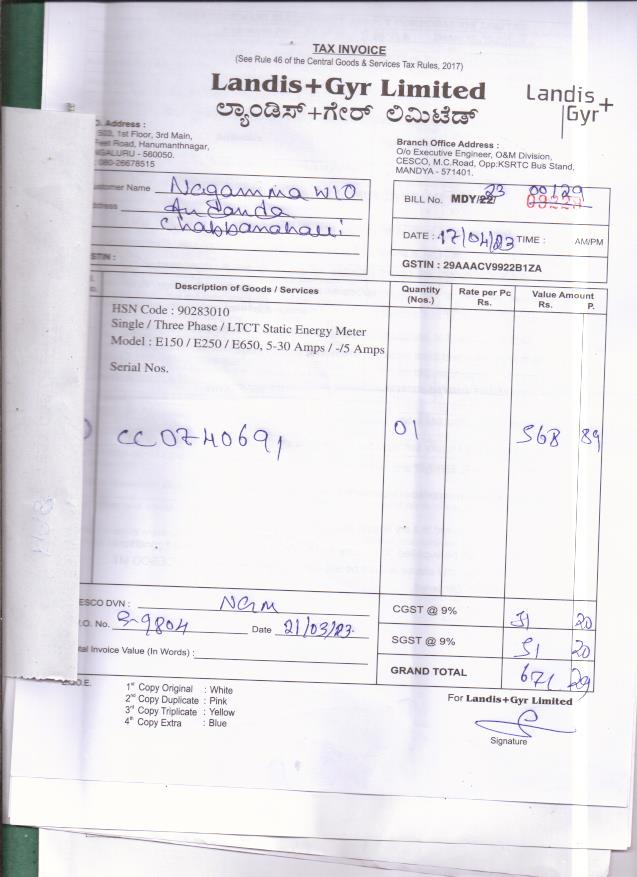 TAX INVOICE
(See Rule 46 of the Central Goods & Services Tax Rules, 2017)
Landis+Gyr Limited
ಲ್ಯಾಂಡಿಸ್+ಗೇರ್ ಲಿಮಿಟೆಡ್
Landis+
Gyr
Address :
1st Floor, 3rd Main,
Road, Hanumanthnagar,
- 560050.
080-26678515
Branch Office Address :
O/o Executive Engineer, O&M Division,
CESCO, M.C.Road, Opp:KSRTC Bus Stand,
MANDYA - 571401.
Name Nagamma W/O
BILL No. MDY/22/ 23 00129
DATE : 17/04/23 TIME : AM/PM
GSTIN : 29AAACV9922B1ZA
Description of Goods / Services
Quantity (Nos.)
Rate per Pc Rs.
Value Amount Rs. P.
HSN Code : 90283010
Single / Three Phase / LTCT Static Energy Meter
Model : E150 / E250 / E650, 5-30 Amps / -/5 Amps
Serial Nos.
CC0740691 01 568 89
DVN : NGM
CGST @ 9% 51 20
No. S-9804 Date 21/03/23.
SGST @ 9% 51 20
Invoice Value (In Words) :
GRAND TOTAL 671 29
1st Copy Original : White
2nd Copy Duplicate : Pink
3rd Copy Triplicate : Yellow
4th Copy Extra : Blue
For Landis+Gyr Limited
Signature